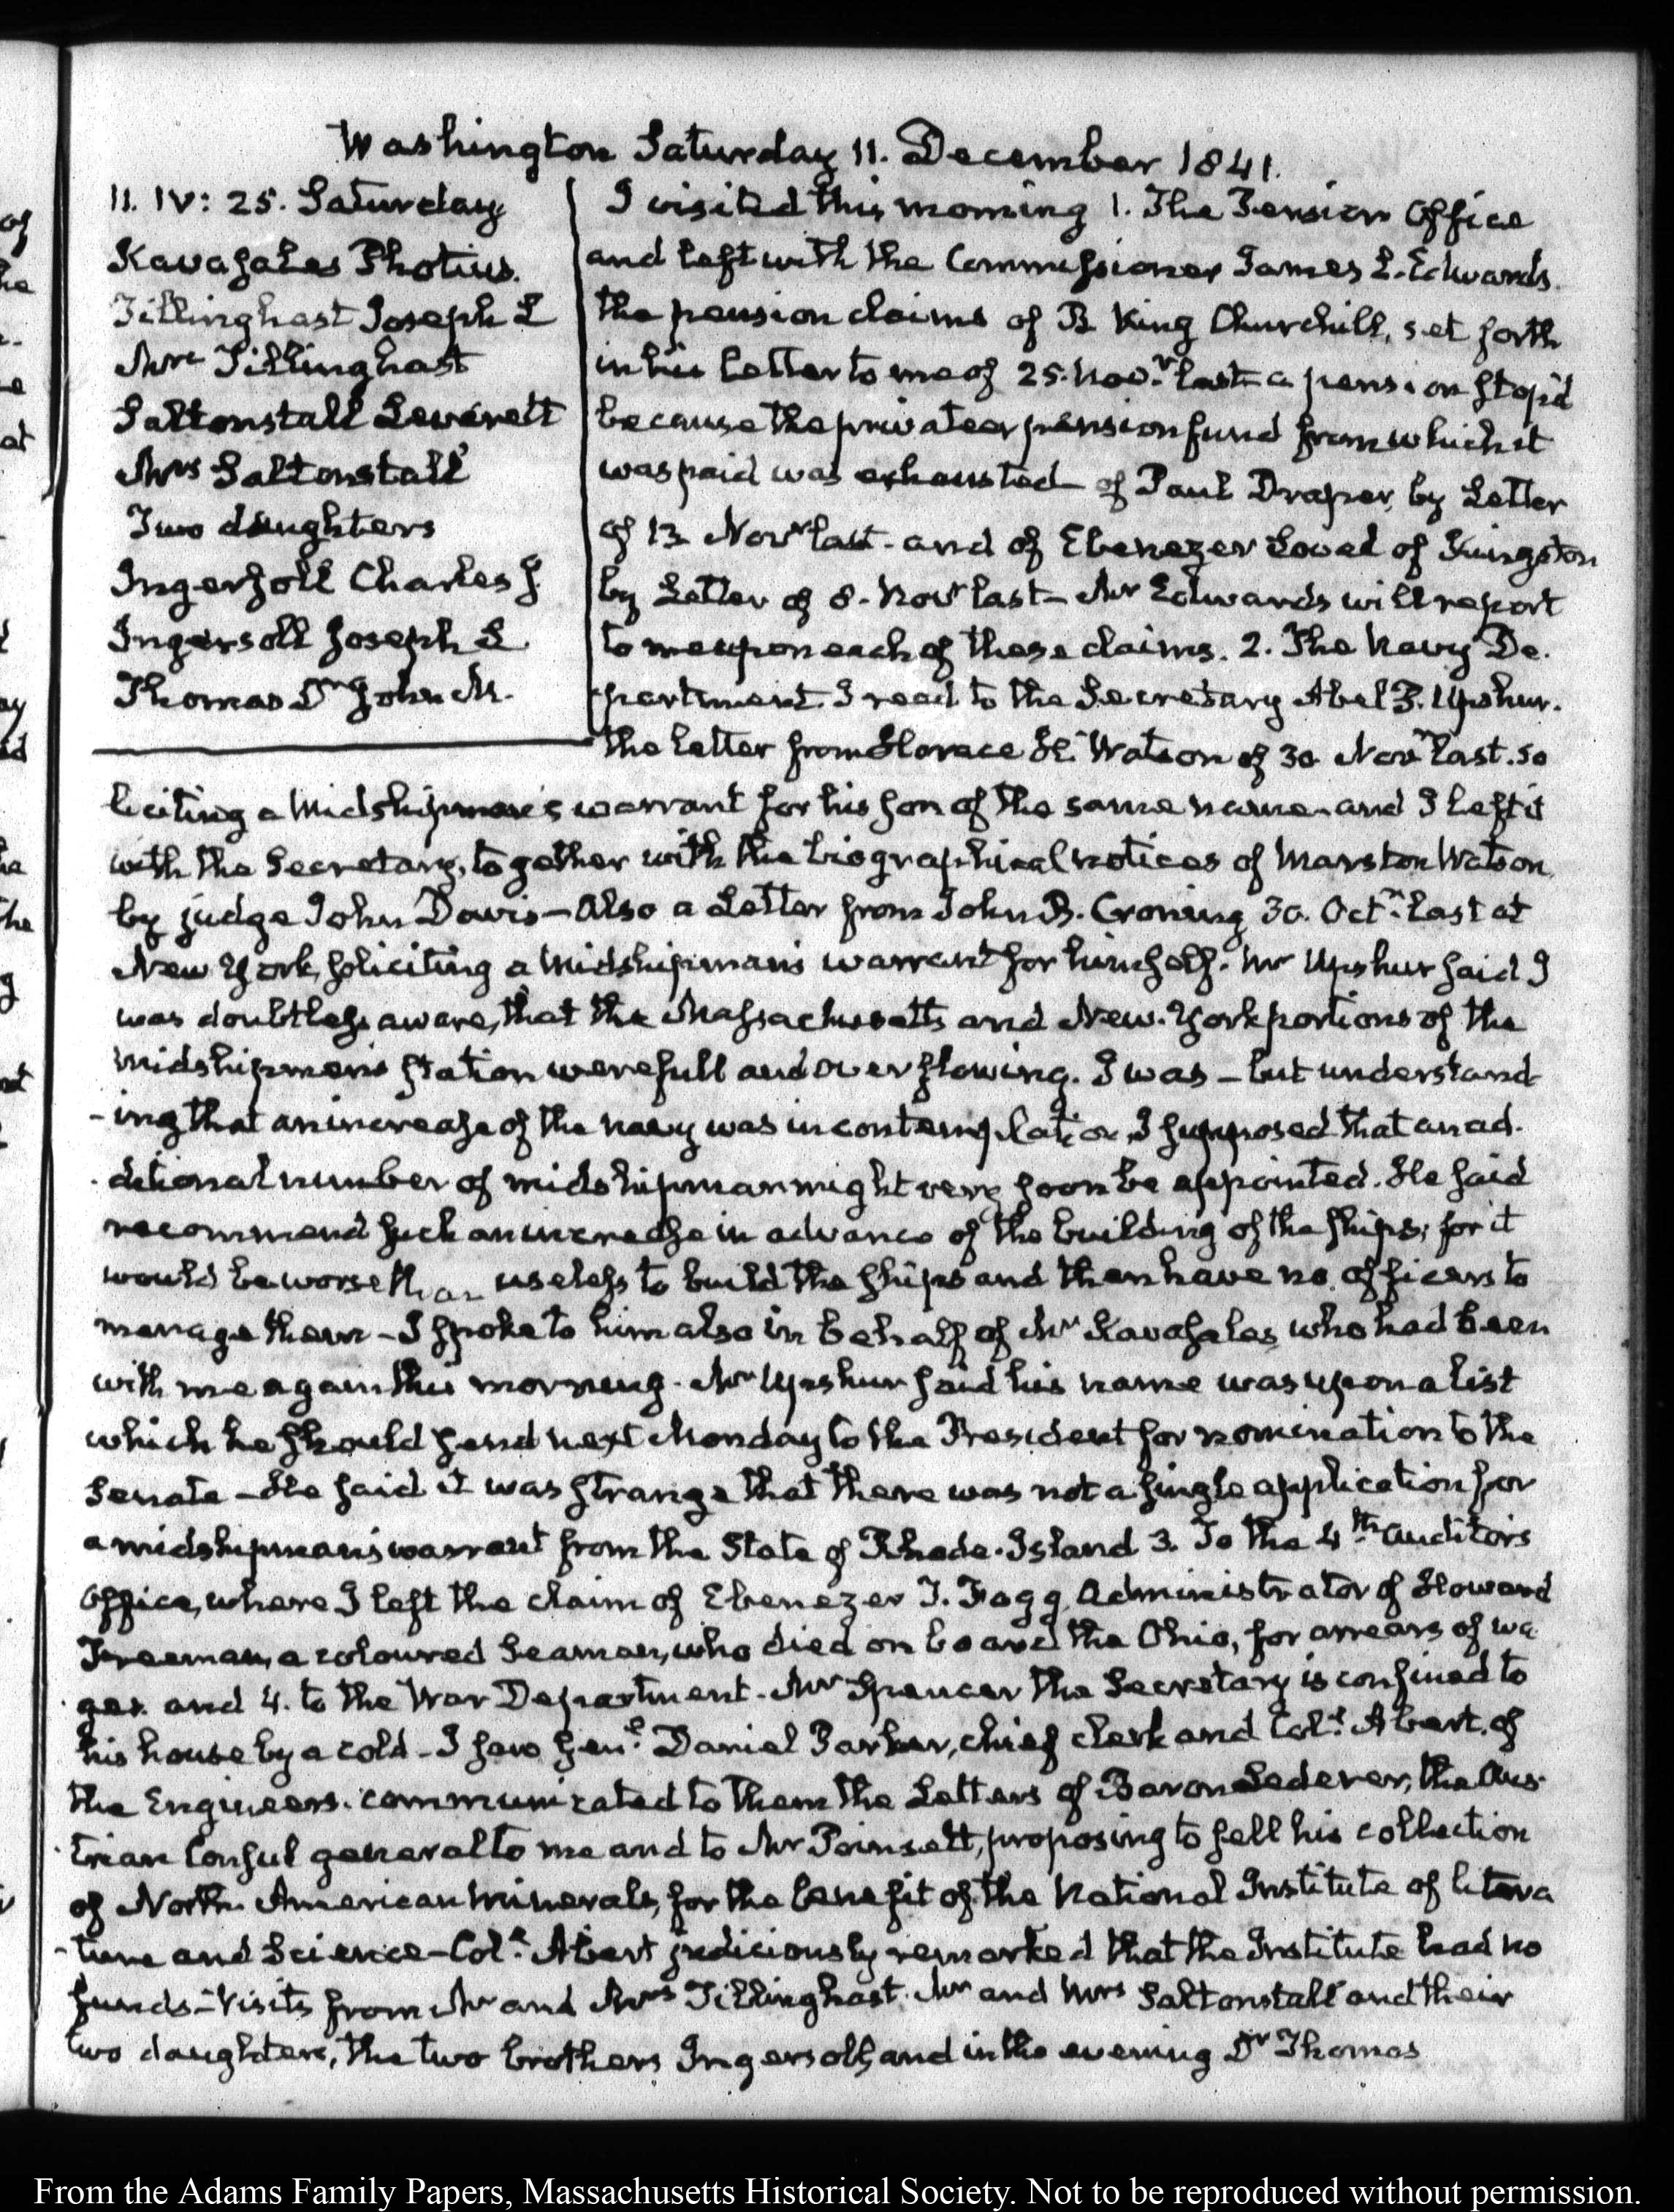 Washington Saturday 11. December 1841.
11. IV: 25. Saturday
Kavasales Photius.
Tillinghast Joseph L
Mrs Tillinghast
Saltonstall Leverett
Mrs Saltonstall
Two daughters
Ingersoll Charles J.
Ingersoll Joseph R.
Thomas Dr John M.
I visited this morning 1. The Pension Office
and left with the Commissioner James L. Edwards.
the pension claims of B King Churchill, set forth
in his letter to me of 25. Novr last a pension stop'd
because the privateer pension fund from which it
was paid was exhausted— of Paul Draper, by Letter
of 13 Novr last— and of Ebenezer Loved of Kingston
by Letter of 8. Novr last— Mr Edwards will report
to me upon each of these claims. 2. The Navy De-
partment. I read to the Secretary Abel P. Upshur.
the letter from Horace H. Watson of 30 Novr last. so
liciting a Midshipman's warrant for his son of the same name. and I left it
with the Secretary, together with the biographical notices of Marston Watson,
by judge John Davis— Also a Letter from John B. 30. Octr last at
New York, soliciting a Midshipman's warrant for himself. Mr Upshur said I
was doubtless aware, that the Massachusetts and New-York portions of the
midshipmen's station were full and overflowing. I was— but understand-
-ing that an increase of the navy was in contemplation, I supposed that an ad-
-ditional number of midshipman might very soon be appointed. He said
recommend such an increase in advance of the building of the ships; for it
would be worse than useless to build the ships and then have no officers to
manage them— I spoke to him also in behalf of Mr Kavasales, who had been
with me again this morning. Mr Upshur said his name was upon a list
which he should send next Monday to the President for nomination to the
Senate— He said it was strange that there was not a single application for
a midshipman's warrant from the State of Rhode-Island 3. To the 4th Auditor's
Office, where I left the claim of Ebenezer T. Fogg, Administrator of Howard
Freeman, a coloured Seaman, who died on board the Ohio, for arrears of wa
ges. and 4. to the War Department. Mr Spencer the Secretary is confined to
his house by a cold— I saw Genl Daniel Parker, chief clerk and Coll Abert, of
the Engineers. communicated to them the Letters of Baron Lederer, the Aus-
-trian Consul general to me and to Mr Poinsett, proposing to sell his collection
of North American minerals, for the benefit of the National Institute of litera
-ture and Science— Coll Abert judiciously remarked that the Institute had no
funds— Visits from Mr and Mrs Tillinghast. Mr and Mrs Saltonstall and their
two daughters, the two brothers Ingersoll, and in the evening Dr Thomas
From the Adams Family Papers, Massachusetts Historical Society. Not to be reproduced without permission.